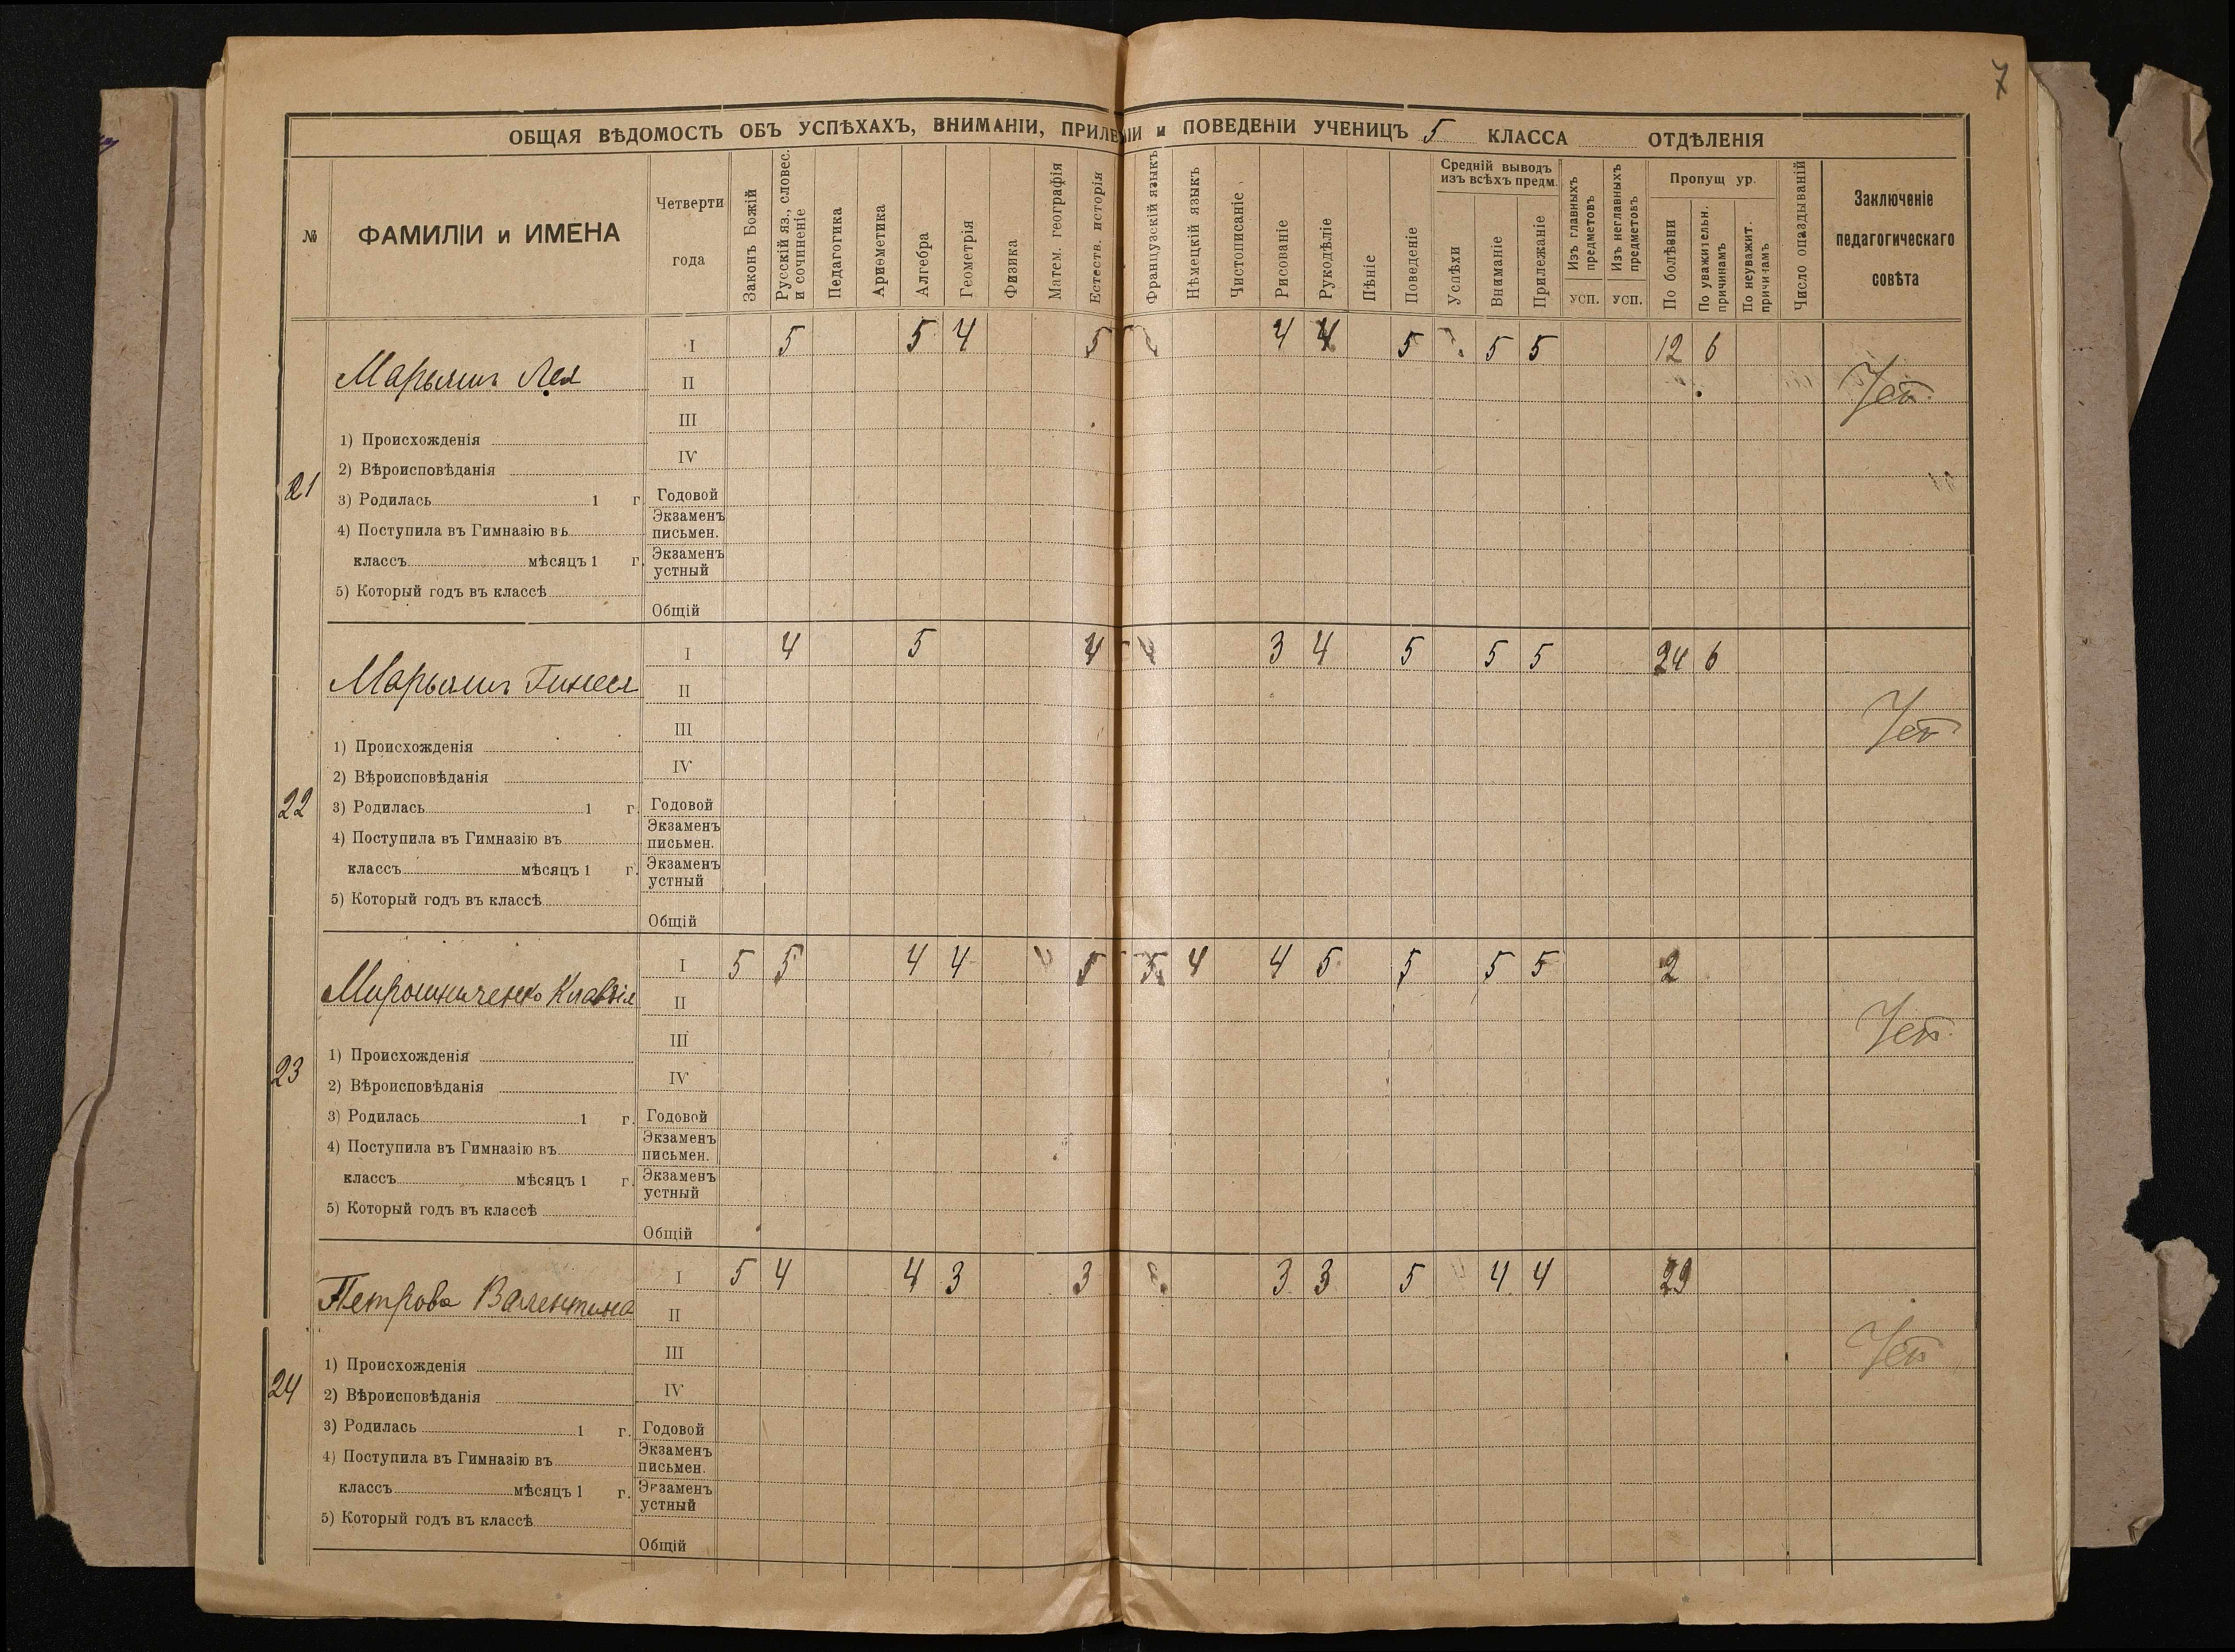 7
ОБЩАЯ ВѢДОМОСТЬ ОБЪ УСПѢХАХЪ, ВНИМАНІИ, ПРИЛЕ НІИ и ПОВЕДЕНІИ УЧЕНИЦЪ 5 КЛАССА ОТДѢЛЕНІЯ
№
ФАМИЛІИ и ИМЕНА
Четверти
года
Законъ Божій
Русскій яз., словес.
и сочиненіе
Педагогика
Ариѳметика
Алгебра
Геометрія
Физика
Матем. географія
Естеств. исторія
Французскій языкъ
Нѣмецкій языкъ
Чистописаніе
Рисованіе
Рукодѣліе
Пѣніе
Поведеніе
Средній выводъ
изъ всѣхъ предм.
Успѣхи
Вниманіе
Прилежаніе
Изъ главныхъ
предметовъ
УСП.
Изъ неглавныхъ
предметовъ
УСП.
Пропущ ур.
По болѣзни
По уважительн.
причинамъ
По неуважит.
причинамъ
Число опаздываній
Заключеніе
педагогическаго
совѣта
21
Марьямъ Лея
I 5 5 4 5 4 4 5 5 5 12 6
II
III
1) Происхожденія
IV
2) Вѣроисповѣданія
3) Родилась 1 г
Годовой
4) Поступила въ Гимназію въ
Экзаменъ
письмен.
классъ мѣсяцъ 1 г.
Экзаменъ
устный
5) Который годъ въ классѣ
Общій
22
I 4 5 4 4 3 4 5 5 5 24 6
Марьямъ
II
III
1) Происхожденія
IV
2) Вѣроисповѣданія
3) Родилась 1 г.
Годовой
4) Поступила въ Гимназію въ
Экзаменъ
письмен.
классъ мѣсяцъ 1 г.
Экзаменъ
устный
5) Который годъ въ классѣ
Общій
23
I 5 5 4 4 5 5 4 4 5 5 5 5 2
Мирошниченко Клавдія
II
III
1) Происхожденія
IV
2) Вѣроисповѣданія
3) Родилась 1 г.
Годовой
4) Поступила въ Гимназію въ
Экзаменъ
письмен.
классъ мѣсяцъ 1 г.
Экзаменъ
устный
5) Который годъ въ классѣ
Общій
24
I 5 4 4 3 3 3 3 5 4 4 29
Петрова Валентина
II
III
1) Происхожденія
IV
2) Вѣроисповѣданія
3) Родилась 1 г.
Годовой
4) Поступила въ Гимназію въ
Экзаменъ
письмен.
классъ мѣсяцъ 1 г.
Экзаменъ
устный
5) Который годъ въ классѣ
Общій